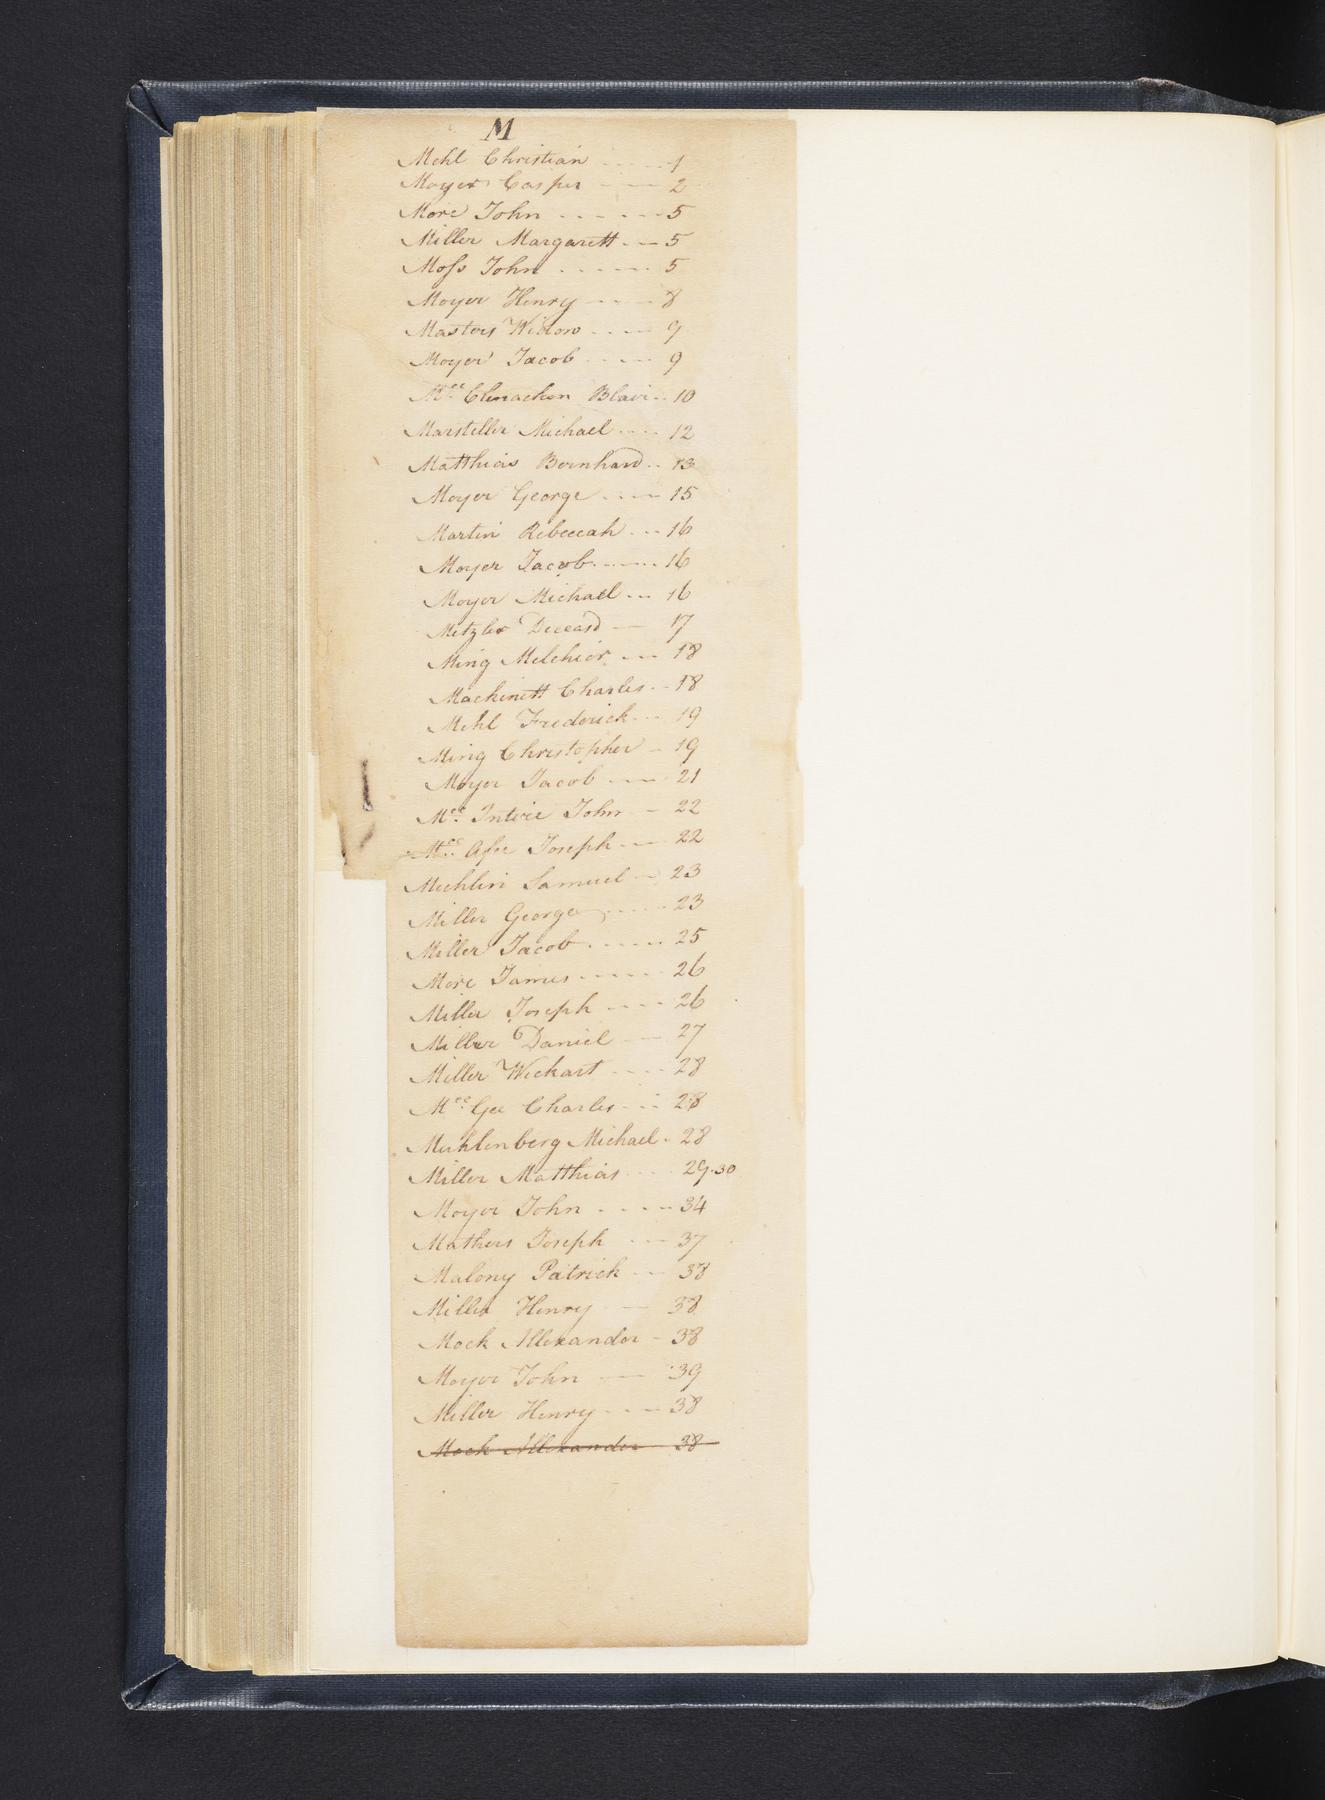 M
Mehl Christian ---- 1
Moyer Casper ---- 2
More John ------ 5
Miller Margarett --- 5
Moss John ------ 5
Moyer Henry ---- 8
Masters Widow ---- 9
Moyer Jacob ----- 9
Mcc Clenachon Blair -- 10
Marsteller Michael ---- 12
Matthias Bernhard -- 13
Moyer George ---- 15
Martin Rebeccah --- 16
Moyer Jacob ------ 16
Moyer Michael --- 16
Metzler Deceasd — 17
Ming Melchior --- 18
Mackinett Charles -- 18
Mehl Frederick --- 19
Ming Christopher - 19
Moyer Jacob --- 21
Mcc Intire John -- 22
Mcc Afee Joseph --- 22
Mechlin Samuel -- 23
Miller George ----- 23
Miller Jacob ----- 25
More James ------ 26
Miller Joseph ---- 26
Miller Daniel --- 27
Miller Wickart ---- 28
Mcc Gee Charles --- 28
Muhlenberg Michael - 28
Miller Matthias ---- 29.30
Moyer John ----- 34
Mathers Joseph --- 37
Malony Patrick --- 38
Miller Henry -- 38
Mock Allexander - 38
Moyer John --- 39
Miller Henry --- 38
Mock Allexander 38